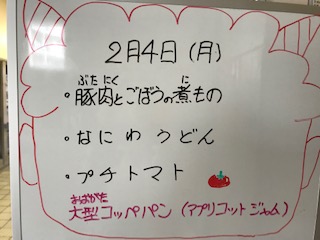 2月4日(月)
ぶたにく に
・豚肉とごぼうの煮もの
・なにわうどん
・プチトマト
おおがた
大型コッペパン(アプリコットジャム)